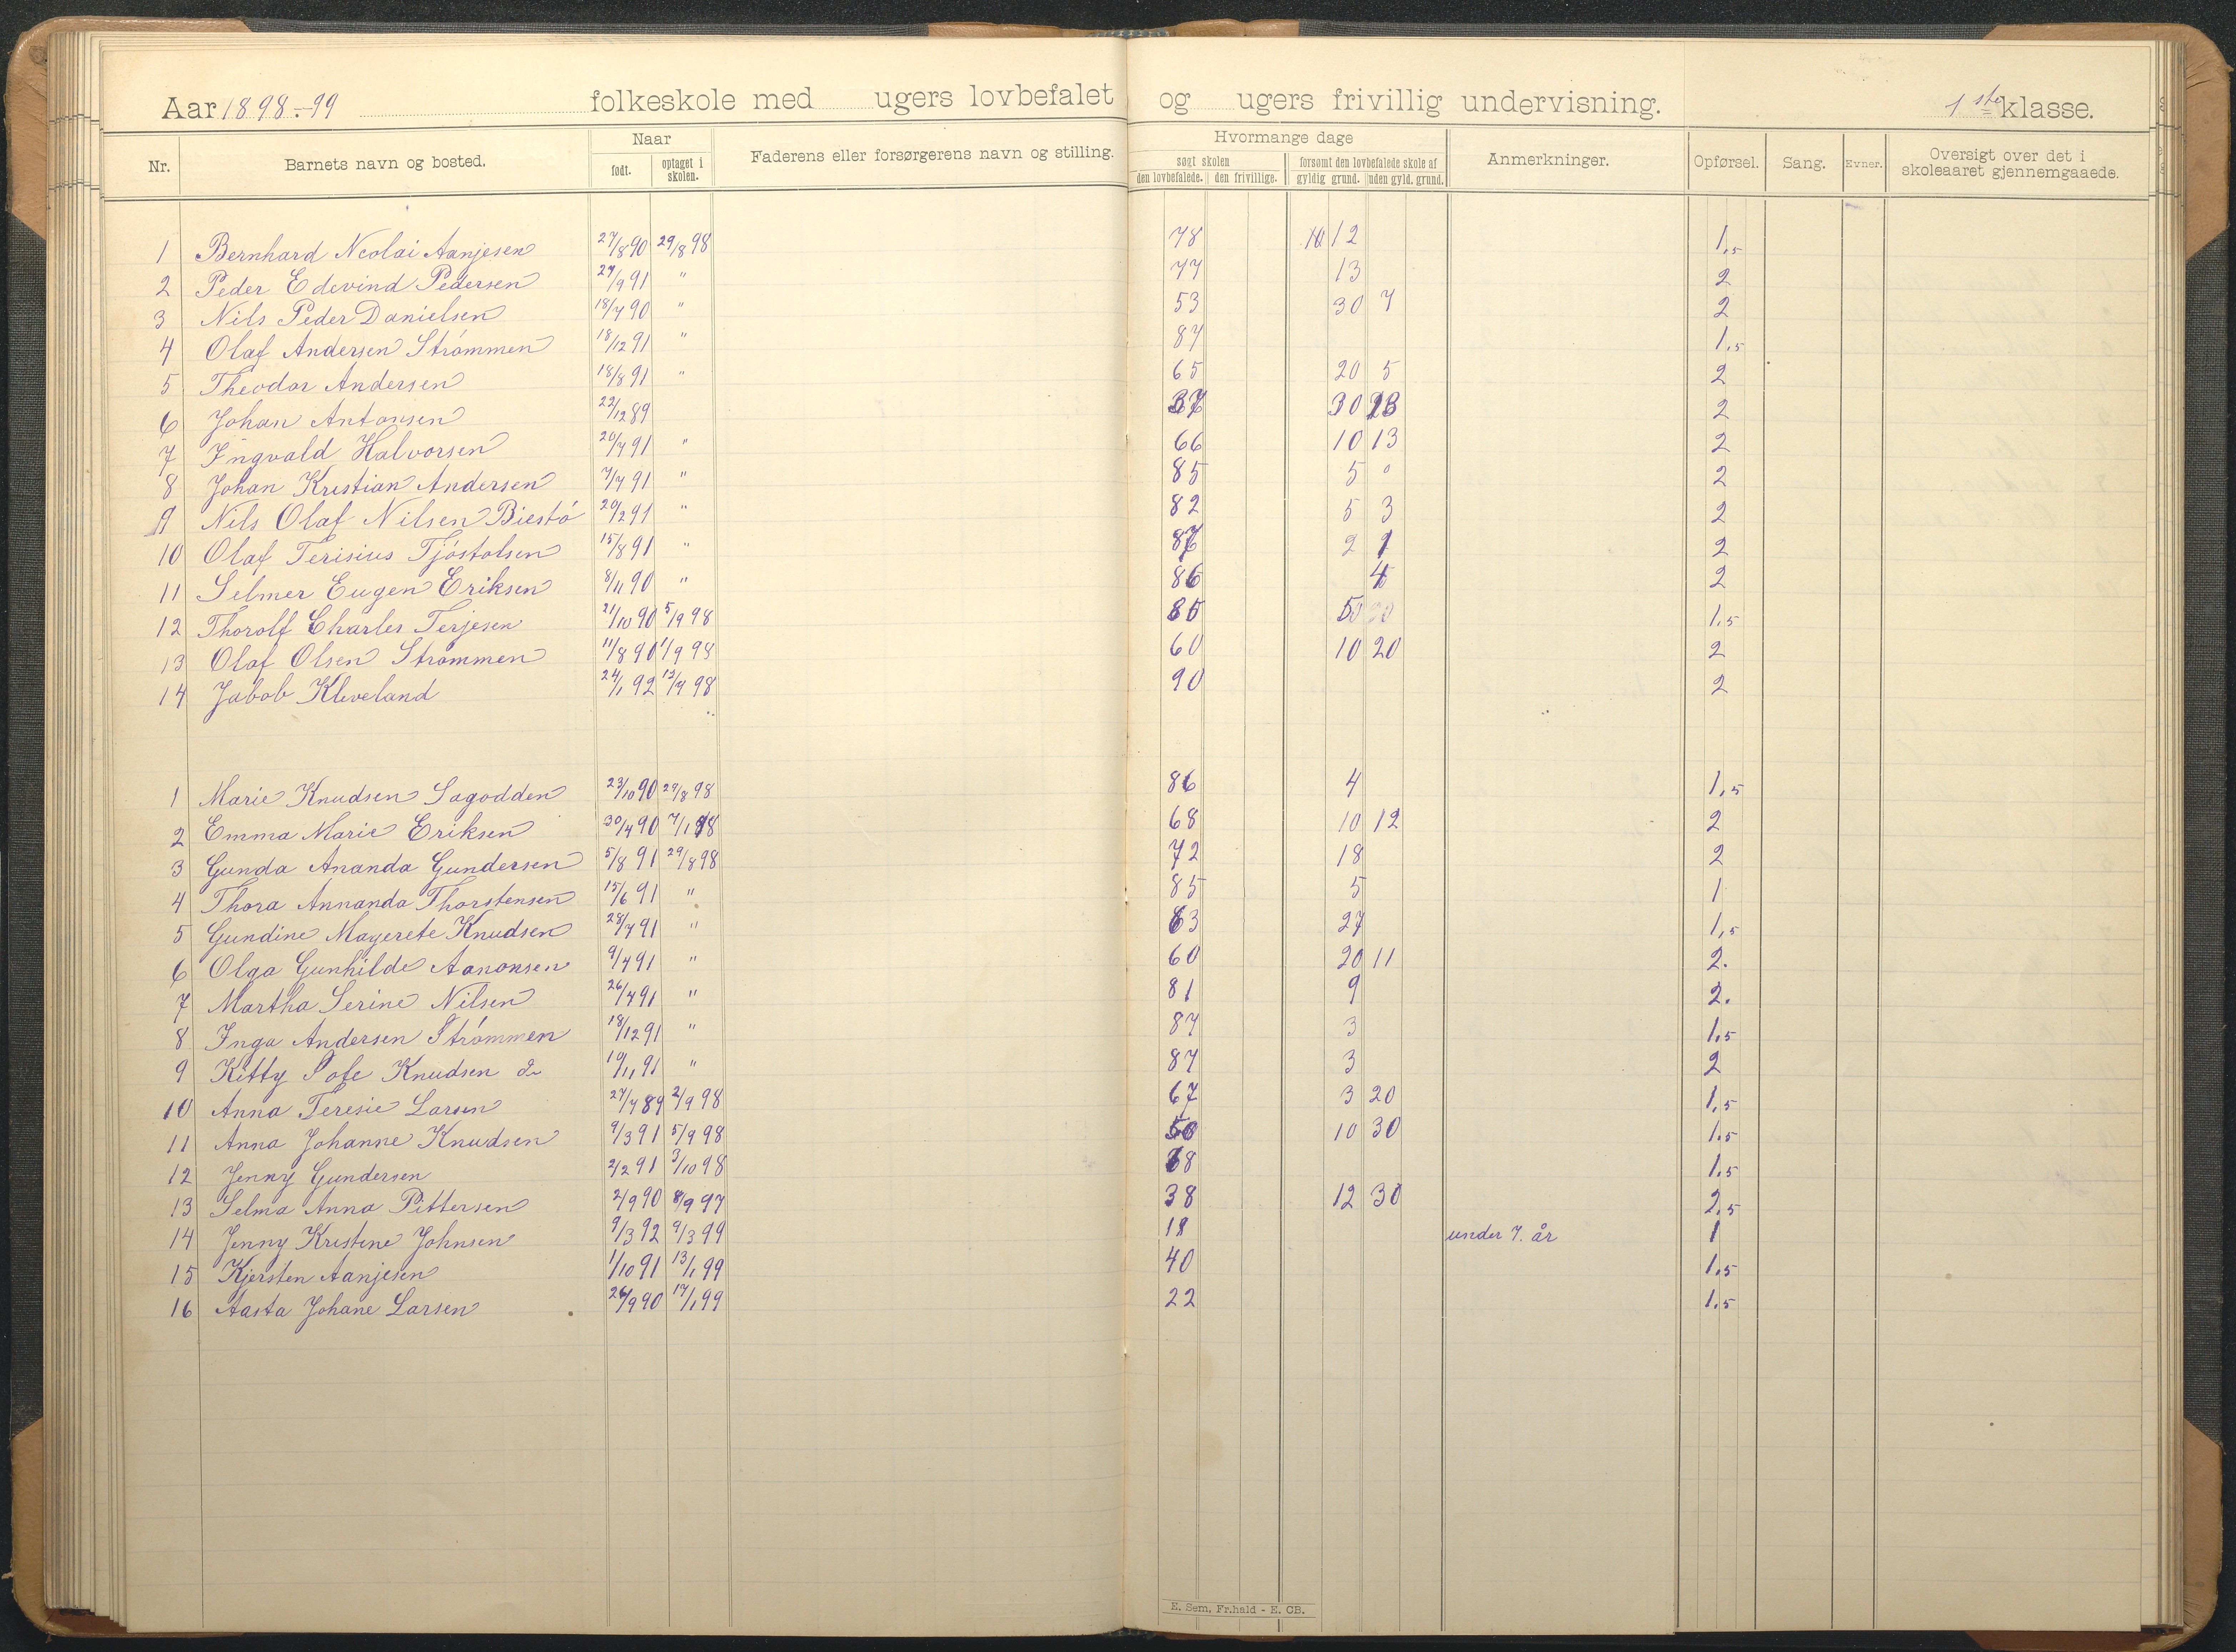 Aar 1898-99 folkeskole med ugers lovbefalet og ugers frivillig undervisning. 1ste klasse.
Nr. Barnets navn og bosted. Naar født. optaget i skolen. Faderens eller forsørgerens navn og stilling. Hvormange dage søgt skolen den lovbefalede. den frivillige. forsømt den lovbefalede skole af gyldig grund. uden gyld. grund. Anmerkninger. Opførsel. Sang. Evner. Oversigt over det i skoleaaret gjennemgaaede.
1 Bernhard Ncolai Aanjesen 27/8 90 29/8 98 78 12 1,5
2 Peder Edevind Pedersen 27/9 91 " 77 13 2
3 Nils Peder Danielsen 18/7 90 " 53 30 7 2
4 Olaf Andersen Strømmen 18/12 91 " 87 1,5
5 Theodor Andersen 18/8 91 " 65 20 5 2
6 Johan Antonsen 22/12 89 37 30 2
7 Ingvald Halvorsen 20/7 91 " 66 10 13 2
8 Johan Kristian Andersen 7/7 91 " 85 5 " 2
9 Nils Olaf Nilsen Biestø 20/2 91 " 82 5 3 2
10 Olaf Terisius Tjøstolsen 15/8 91 " 87 2 1 2
11 Selmer Eugen Eriksen 8/11 90 " 86 4 2
12 Thorolf Charles Terjesen 21/10 90 5/9 98 85 5 1,5
13 Olaf Olsen Strømmen 11/8 90 1/9 98 60 10 20 2
14 Jabob Kleveland 24/1 92 13/9 98 90 2
1 Marie Knudsen Sagodden 23/10 90 29/8 98 86 4 1,5
2 Emma Marie Eriksen 30/7 90 7/1 98 68 10 12 2
3 Gunda Ananda Gundersen 5/8 91 29/8 98 72 18 2
4 Thora Annanda Thorstensen 15/6 91 " 85 5 1
5 Gundine Magerete Knudsen 28/7 91 " 63 27 1,5
6 Olga Gunhilde Aanonsen 9/7 91 " 60 20 11 2.
7 Martha Serine Nilsen 26/7 91 " 81 9 2.
8 Inga Andersen Strømmen 18/12 91 " 87 3 1,5
9 Kitty Sofe Knudsen 19/11 91 " 87 3 2
10 Anna Teresie Larsen 27/7 89 2/9 98 67 3 20 1,5
11 Anna Johanne Knudsen 9/3 91 5/9 98 50 10 30 1,5
12 Jenny Gundersen 2/2 91 3/10 98 68 1,5
13 Selma Anna Pittersen 2/9 90 8/9 97 38 12 30 2,5
14 Jenny Kristene Johnsen 9/3 92 9/3 99 18 under 7. år 1
15 Kjersten Aanjesen 1/10 91 13/1 99 40 1,5
16 Aasta Johane Larsen 26/9 90 17/1 99 22 1,5
E. Sem, Fr.hald - E. CB.